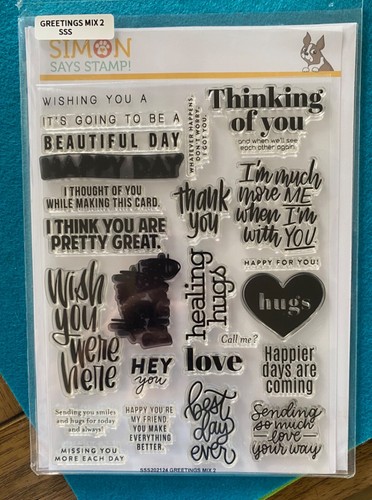 GREETINGS MIX 2
SSS
SIMON
SAYS STAMP!
WISHING YOU A
IT'S GOING TO BE A
BEAUTIFUL DAY
WHATEVER HAPPENS,
DON'T WORRY.
I GOT YOU.
Thinking
of you
and when we'll see
each other again.
I THOUGHT OF YOU
WHILE MAKING THIS CARD.
I THINK YOU ARE
PRETTY GREAT.
thank
you
I'm much
more ME
when I'm
with YOU.
HAPPY FOR YOU!
Wish
you
were
here
healing
hugs
hugs
Call me?
HEY
you
love
Happier
days are
coming
Sending you smiles
and hugs for today
and always!
HAPPY YOU'RE
MY FRIEND.
YOU MAKE
EVERYTHING
BETTER.
best
day
ever
Sending
so much
love
your way
MISSING YOU
MORE EACH DAY
SSS202124 GREETINGS MIX 2